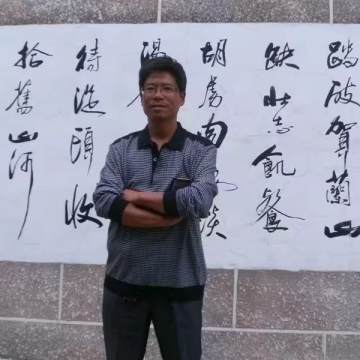 踏破賀蘭山
缺壮志飢餐
胡虜肉談
渴
待從頭收
拾舊山河